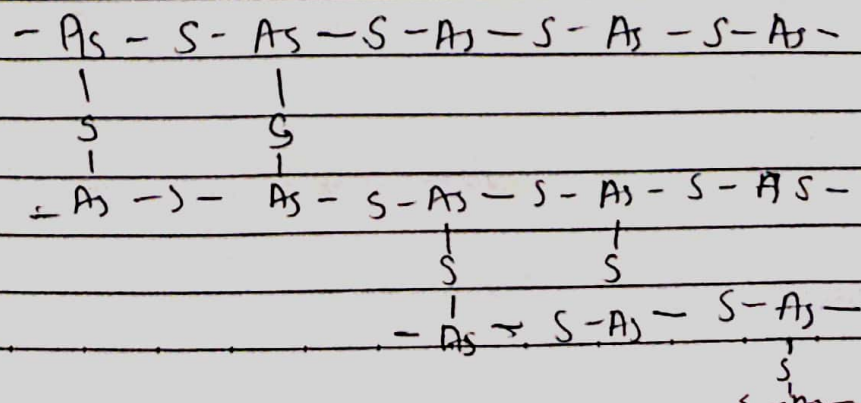 - As - S - As - S - As - S - As - S - As -
| |
S S
| |
- As - S - As - S - As - S - As - S - AS -
| |
S S
|
- As - S - As - S - As -
|
S
|